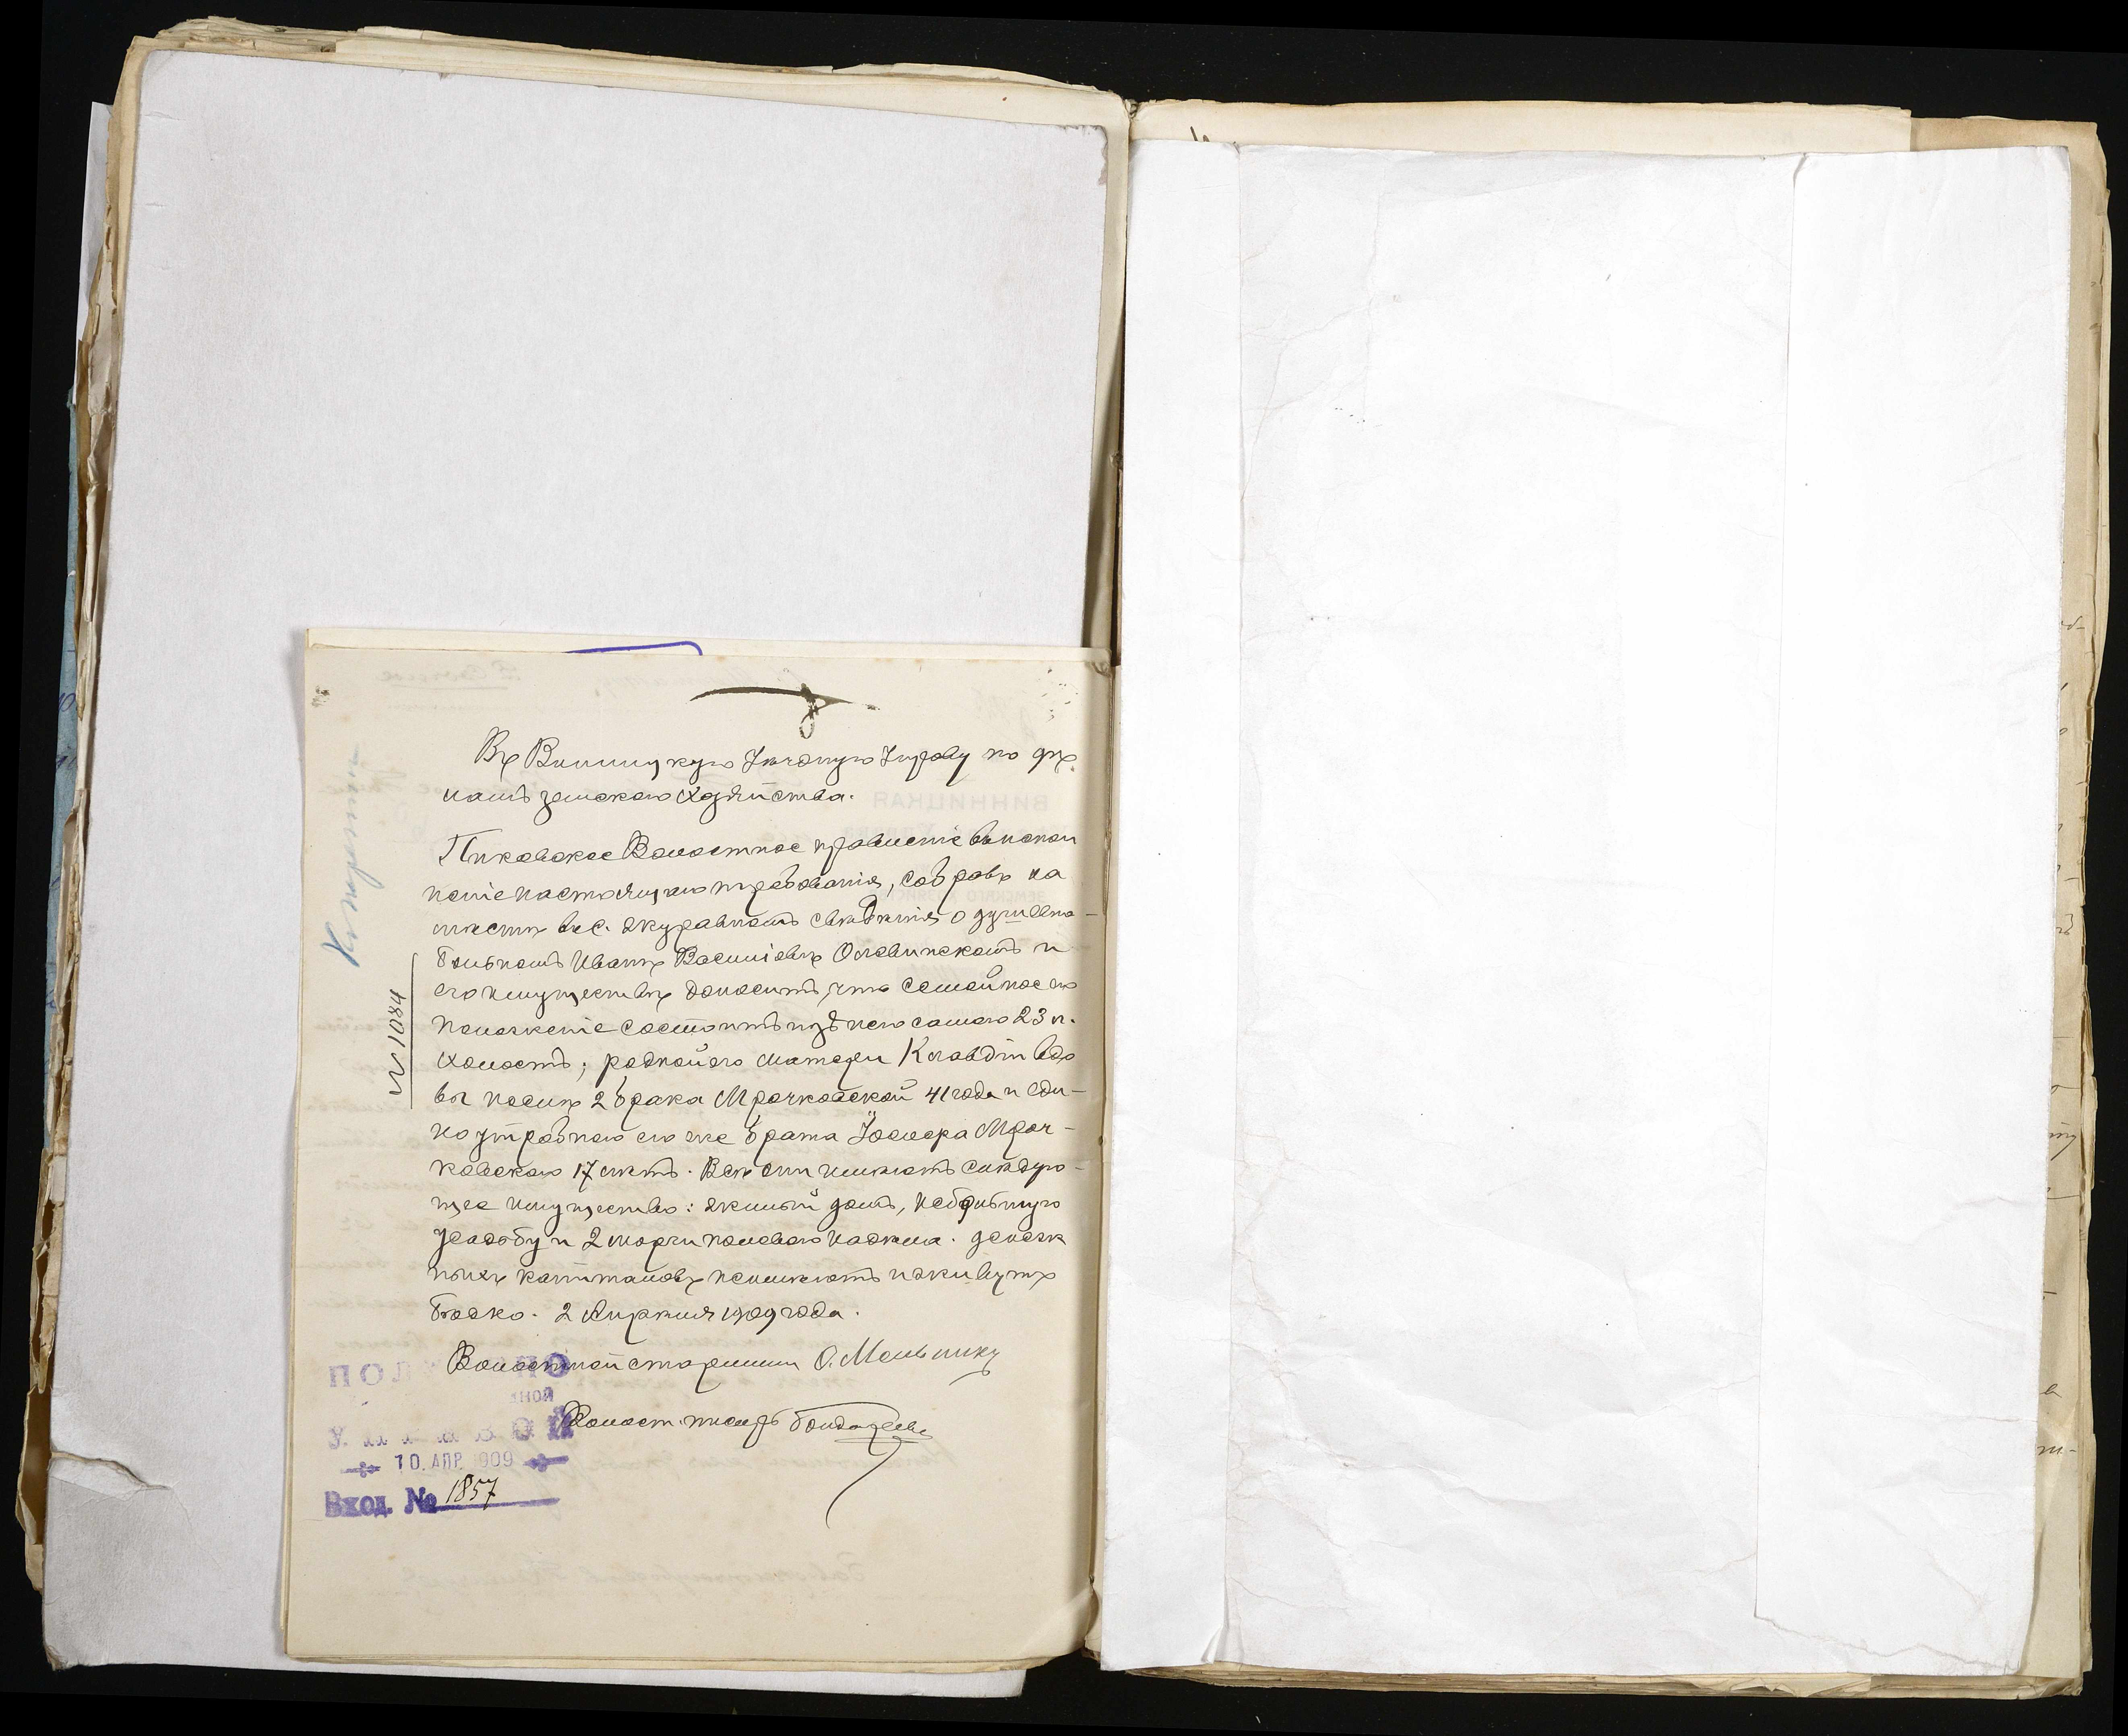 Въ Винницкую Уѣздную Управу по дѣ-
ламъ земскаго хозяйства.
Пиковское Волостное правленіе во испол
неніе настоящаго требованія, собравъ на
мѣстѣ въ с. Журавномъ свѣдѣнія о душевно-
больномъ Иванѣ Василіевѣ Олевинскомъ и
его имуществѣ доноситъ, что семейное его
положеніе состоитъ изъ него самаго 23 л.
холостъ; родной его матери Клавдіи вдо
вы послѣ 2 брака Мрочковской 41 года и еди-
ноутробнаго его же брата Іосифа Мроч-
ковскаго 17 лѣтъ. Всѣ они имѣютъ слѣдую-
щее имущество: жилый домъ, небольшую
усадьбу и 2 морги полеваго надѣла. денеж
ныхъ капиталовъ не имѣютъ и живутъ
бѣдно. 2 Апрѣля 1909 года.
Волостной старшина О. Мельникъ
Волост. писарь Бондаревъ
№ 1084
ПОЛУЧЕНО
УПРАВОЙ
10. АПР. 1909
Вход. № 1857
ВИННИЦКАЯ